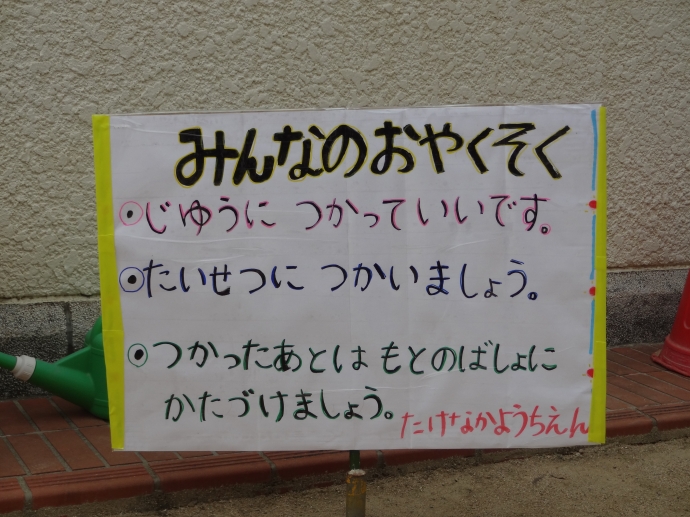 みんなのおやくそく
◉じゆうに つかっていいです。
◉たいせつに つかいましょう。
◉つかったあとは もとのばしょに
かたづけましょう。
たけなかようちえん